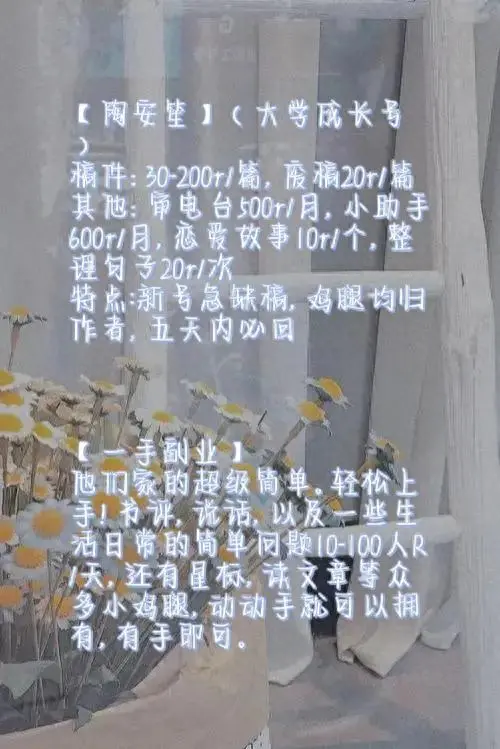 【陶安笙】(大学成长号
)
稿件:30-200r/篇,废稿20r/篇
其他:审电台500r/月,小助手
600r/月,恋爱故事10r/个,整
理句子20r/次
特点:新号急缺稿,鸡腿均归
作者,五天内必回
【一手副业】
他们家的超级简单。轻松上
手!书评,说话,以及一些生
活日常的简单问题10-100人R
/天,还有星标,读文章等众
多小鸡腿,动动手就可以拥
有,有手即可。